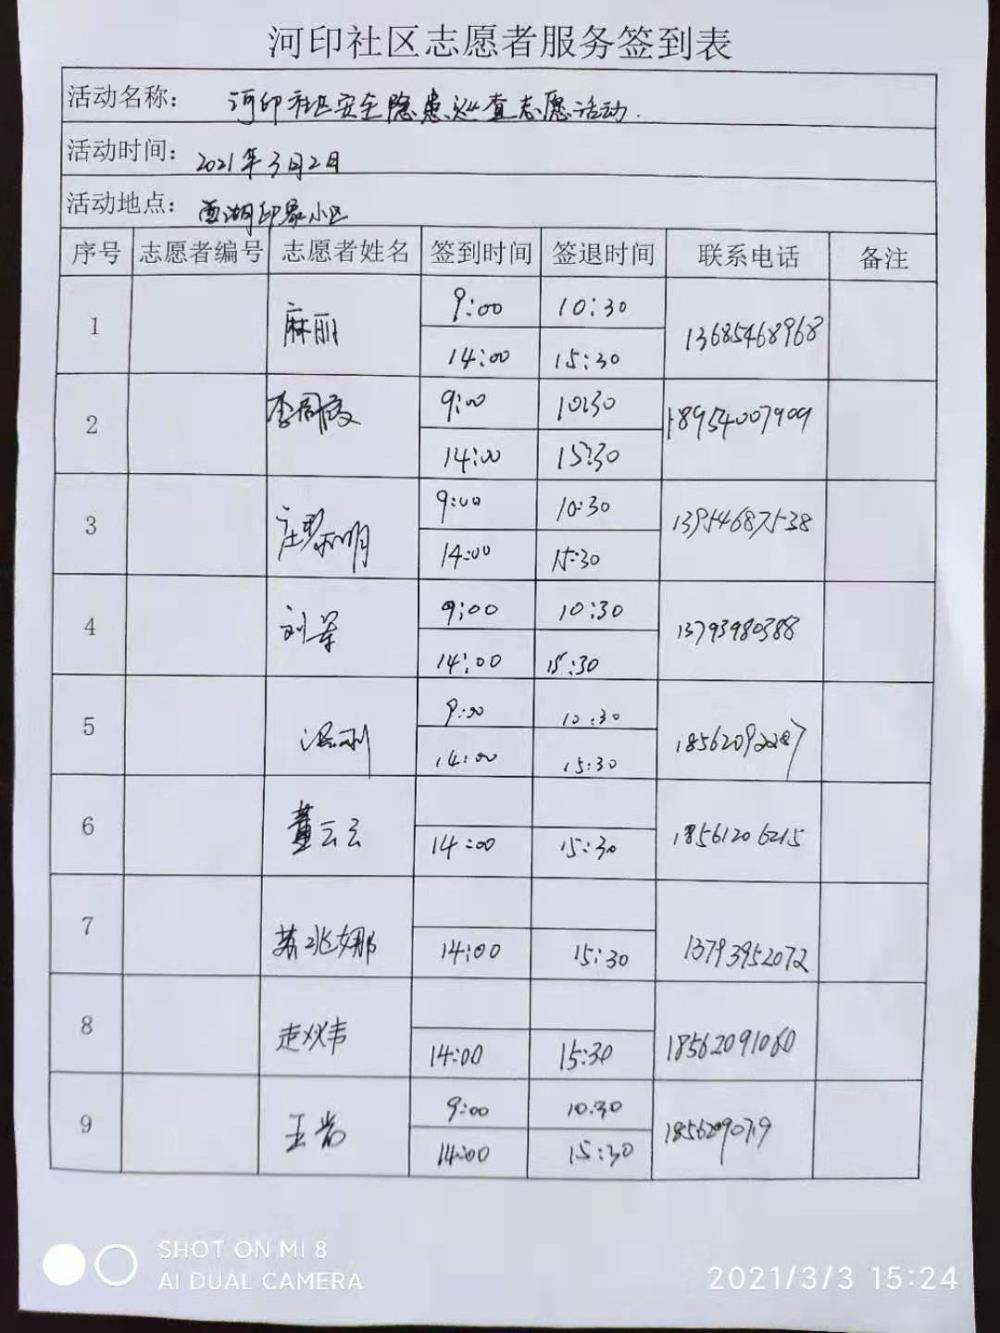 河印社区志愿者服务签到表
活动名称： 河印社区安全隐患巡查志愿活动.
活动时间： 2021年3月2日
活动地点： 西湖印象小区
序号 志愿者编号 志愿者姓名 签到时间 签退时间 联系电话 备注
1 麻丽 9:00 10:30 13685468968
14:00 15:30
2 9:00 10:30 18954007909
14:00 15:30
3 9:00 10:30 13954687538
14:00 15:30
4 刘军 9:00 10:30 13793980388
14:00 15:30
5 9:00 10:30
14:00 15:30
6 董云云 14:00 15:30 18561206215
7 苏兆娜 14:00 15:30 13793952072
8 14:00 15:30 18562091060
9 王岩 9:00 10:30
14:00 15:30
SHOT ON MI 8
AI DUAL CAMERA
2021/3/3 15:24